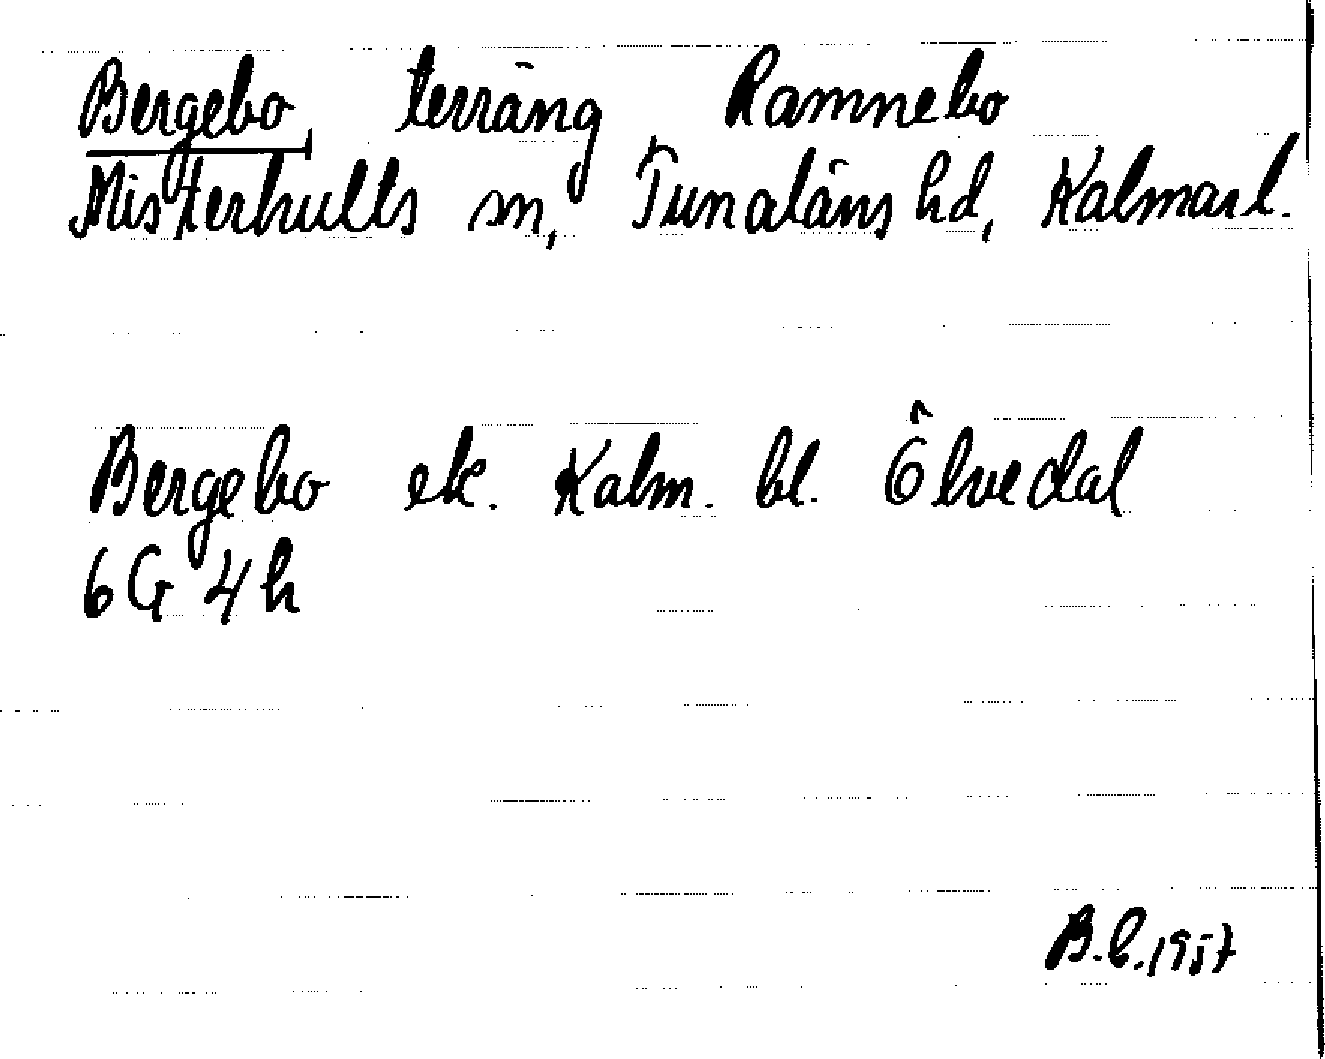 Bergebo, terräng Ramnebo
Misterhults sn, Tunaläns hd, Kalmar l.
Bergebo ek. Kalm. bl. Ölvedal
6G 4h
B.C. 1957